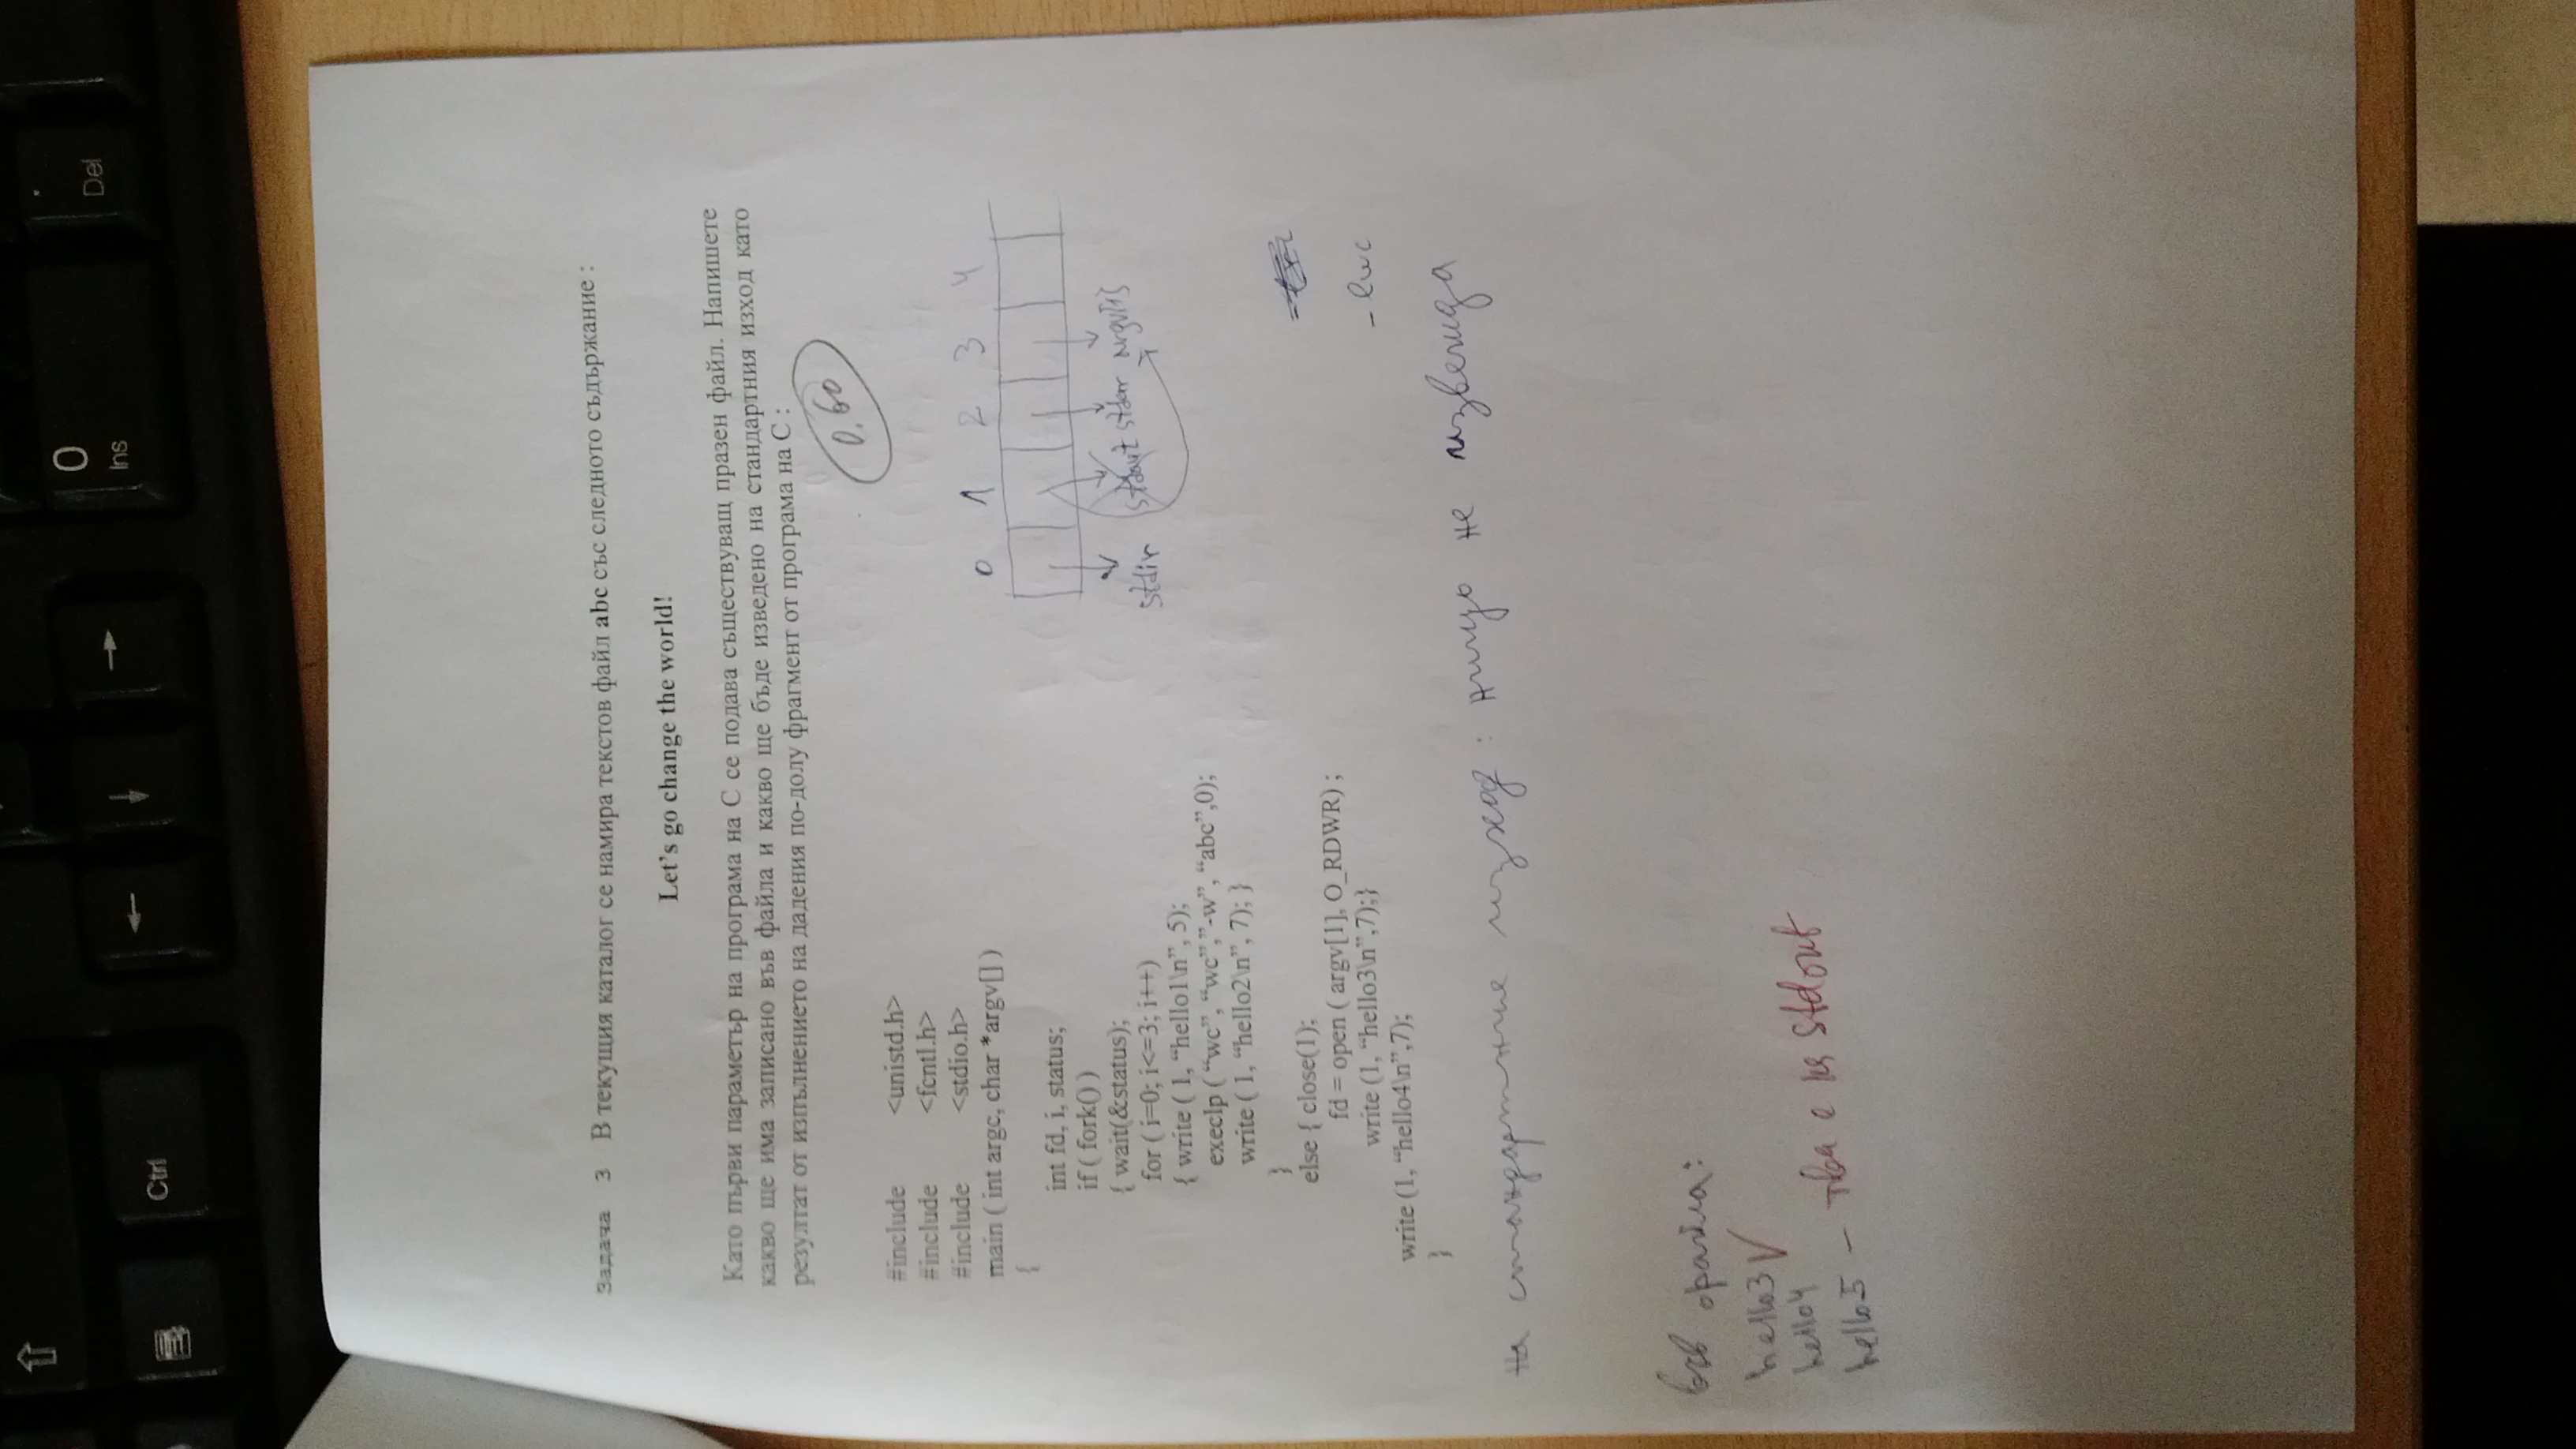 0
Ins
Del
Ctrl
Задача 3 В текущия каталог се намира текстов файл abc със следното съдържание :
Let’s go change the world!
Като първи параметър на програма на С се подава съществуващ празен файл. Напишете
какво ще има записано във файла и какво ще бъде изведено на стандартния изход като
резултат от изпълнението на дадения по-долу фрагмент от програма на С :
0.60
#include <unistd.h>
#include <fcntl.h>
#include <stdio.h>
main ( int argc, char *argv[] )
{
int fd, i, status;
if ( fork() )
{ wait(&status);
for ( i=0; i<=3; i++)
{ write ( 1, “hello1\n”, 5);
execlp ( “wc”, “wc”,”-w”, “abc”,0);
write ( 1, “hello2\n”, 7); }
}
else { close(1);
fd = open ( argv[1], O_RDWR) ;
write (1, “hello3\n”,7);}
write (1, “hello4\n”,7);
}
0 1 2 3 4
stdin stdout stderr argv[1]
- lwc
на стандартния изход : нищо не извежда
във файла:
hello3 √
hello4
hello5 – това е на stdout